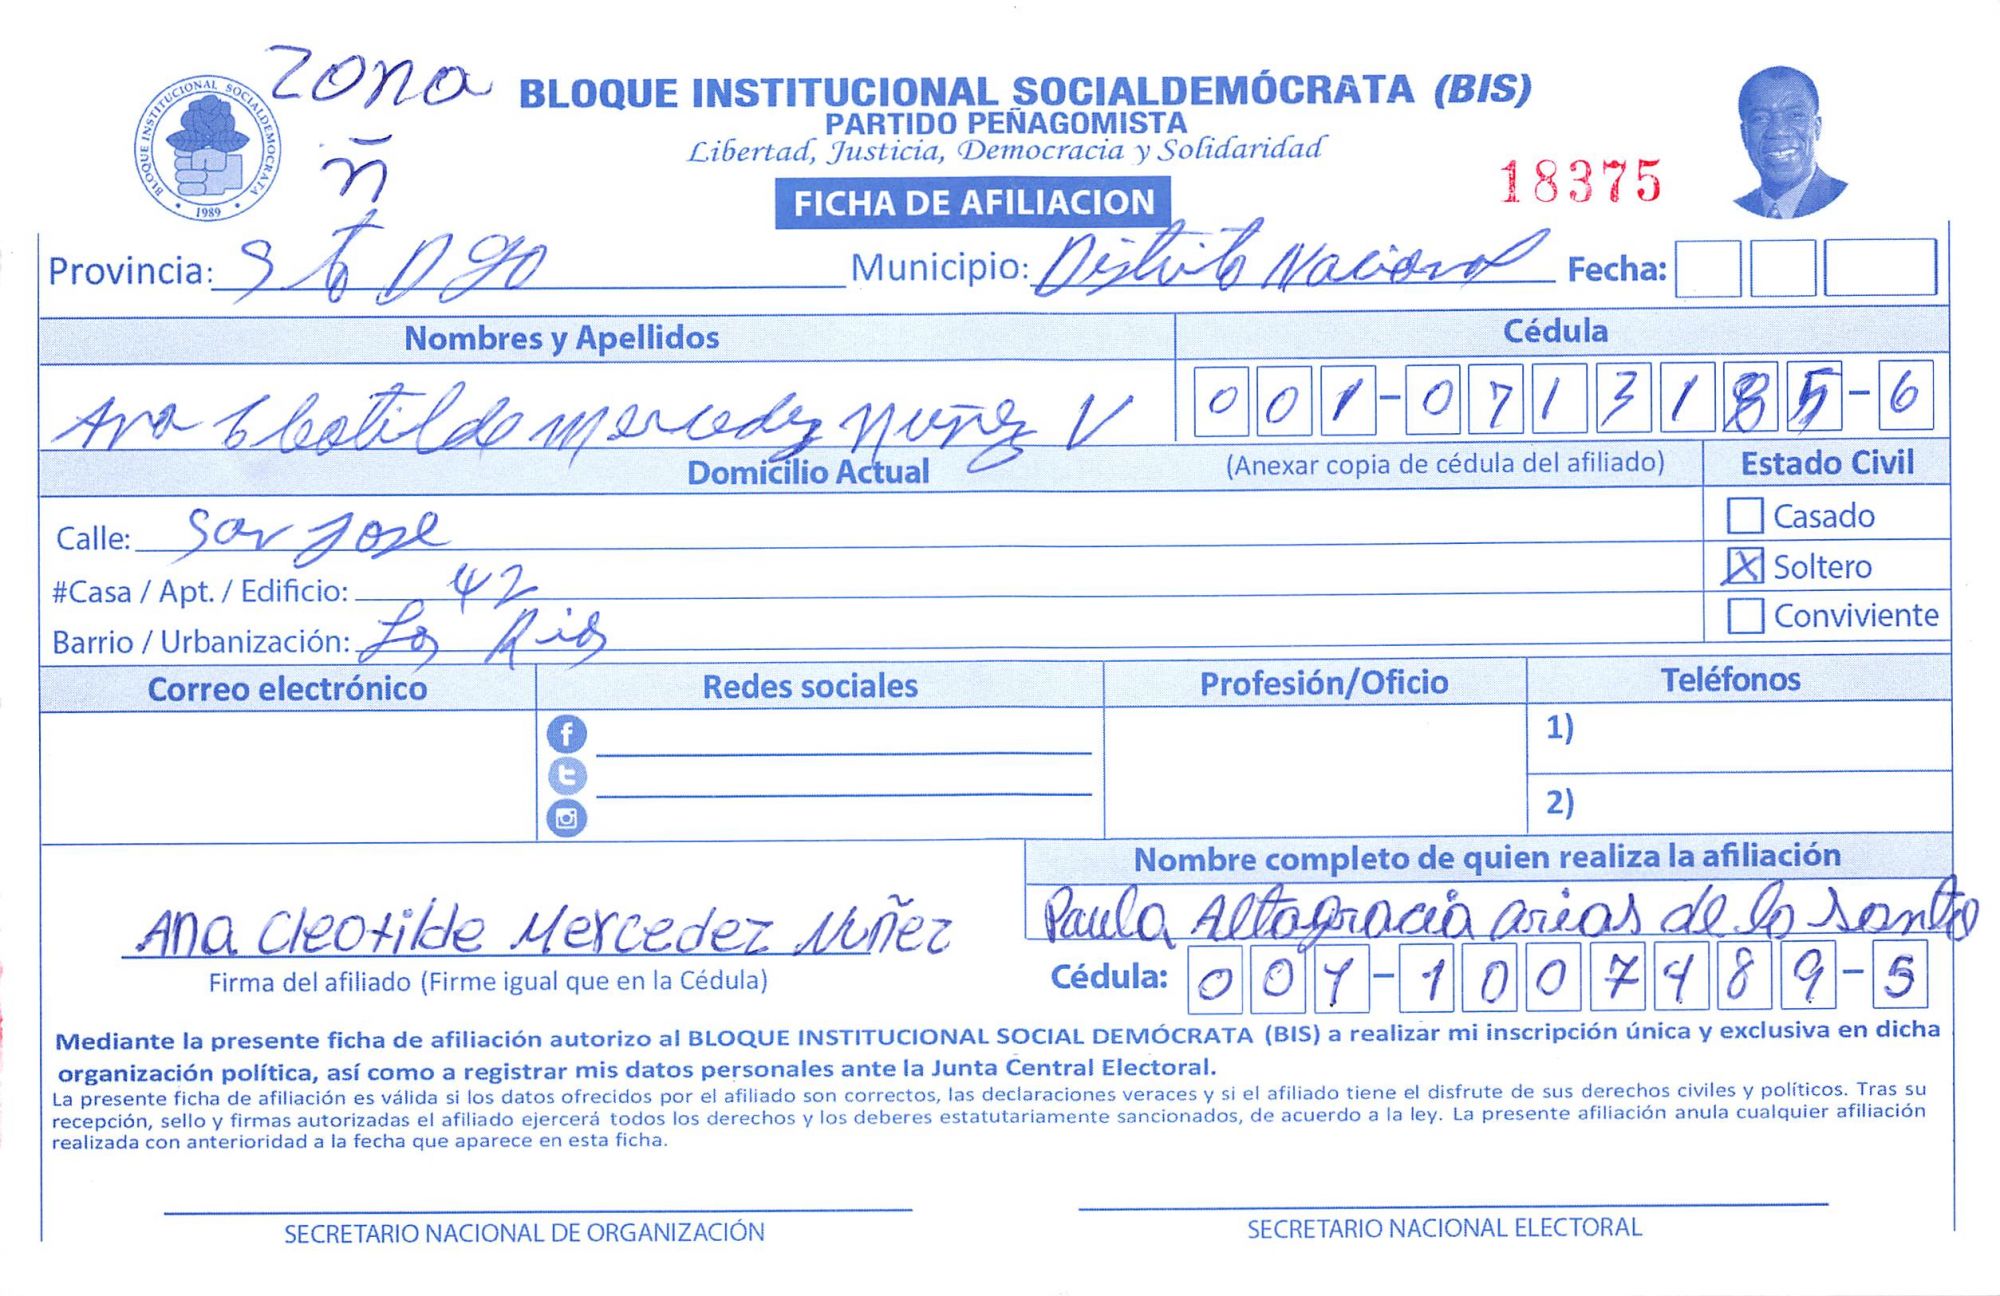 Zona
ñ
BLOQUE INSTITUCIONAL SOCIALDEMOCRATA
1989
BLOQUE INSTITUCIONAL SOCIALDEMÓCRATA (BIS)
PARTIDO PEÑAGOMISTA
Libertad, Justicia, Democracia y Solidaridad
FICHA DE AFILIACION
18375
Provincia: Sto Dgo Municipio: Distrito Nacional Fecha:
Nombres y Apellidos Cédula
Ana Cleotilde Mercedez Nuñez V 001-0713185-6
Domicilio Actual (Anexar copia de cédula del afiliado) Estado Civil
Calle: San Jose
Casado
#Casa / Apt. / Edificio: 42
X Soltero
Barrio / Urbanización: Los Rios
Conviviente
Correo electrónico Redes sociales Profesión/Oficio Teléfonos
1)
2)
Nombre completo de quien realiza la afiliación
Paula Altagracia arias de lo santo
Ana Cleotilde Mercedez Nuñez
Firma del afiliado (Firme igual que en la Cédula)
Cédula: 001-1007489-5
Mediante la presente ficha de afiliación autorizo al BLOQUE INSTITUCIONAL SOCIAL DEMÓCRATA (BIS) a realizar mi inscripción única y exclusiva en dicha
organización política, así como a registrar mis datos personales ante la Junta Central Electoral.
La presente ficha de afiliación es válida si los datos ofrecidos por el afiliado son correctos, las declaraciones veraces y si el afiliado tiene el disfrute de sus derechos civiles y políticos. Tras su
recepción, sello y firmas autorizadas el afiliado ejercerá todos los derechos y los deberes estatutariamente sancionados, de acuerdo a la ley. La presente afiliación anula cualquier afiliación
realizada con anterioridad a la fecha que aparece en esta ficha.
SECRETARIO NACIONAL DE ORGANIZACIÓN
SECRETARIO NACIONAL ELECTORAL